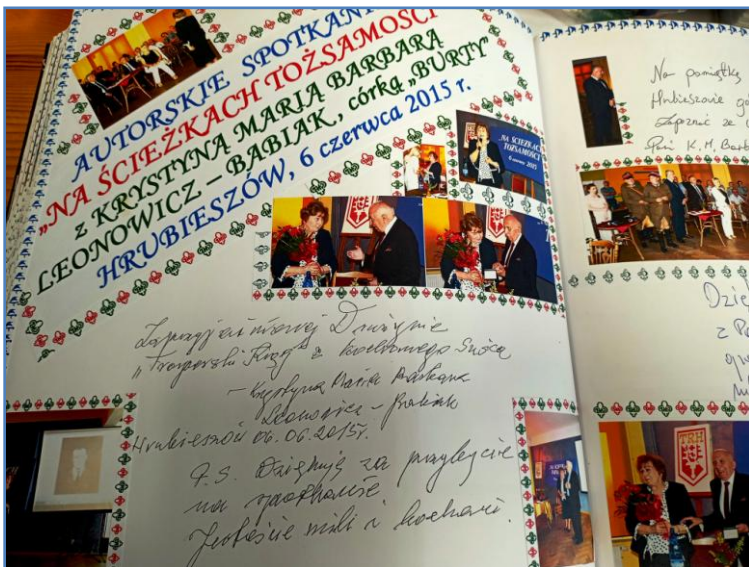 AUTORSKIE SPOTKANIE
„NA ŚCIEŻKACH TOŻSAMOŚCI”
z KRYSTYNĄ MARIĄ BARBARĄ
LEONOWICZ – BABIAK, córką „BURTY”
HRUBIESZÓW, 6 czerwca 2015 r.
„NA ŚCIEŻKACH
TOŻSAMOŚCI”
6 czerwca 2015
Zaprzyjaźnionej Drużynie
z
– Krystyna Maria Barbara
Leonowicz – Babiak
Hrubieszów 06.06.2015r.
P.S. Dziękuję za przybycie
na spotkanie.
Jesteście mili i kochani.
Na pamiątkę
Hrubieszowie
K. M. Barb
Dzię
z
TRH